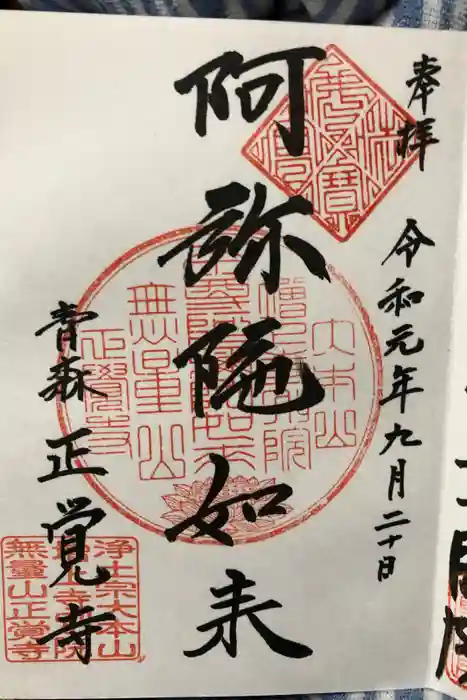 奉拝
令和元年九月二十日
阿弥陀如来
青森正覚寺
大本山
無量山
正覺寺
浄土宗大本山
無量山正覚寺